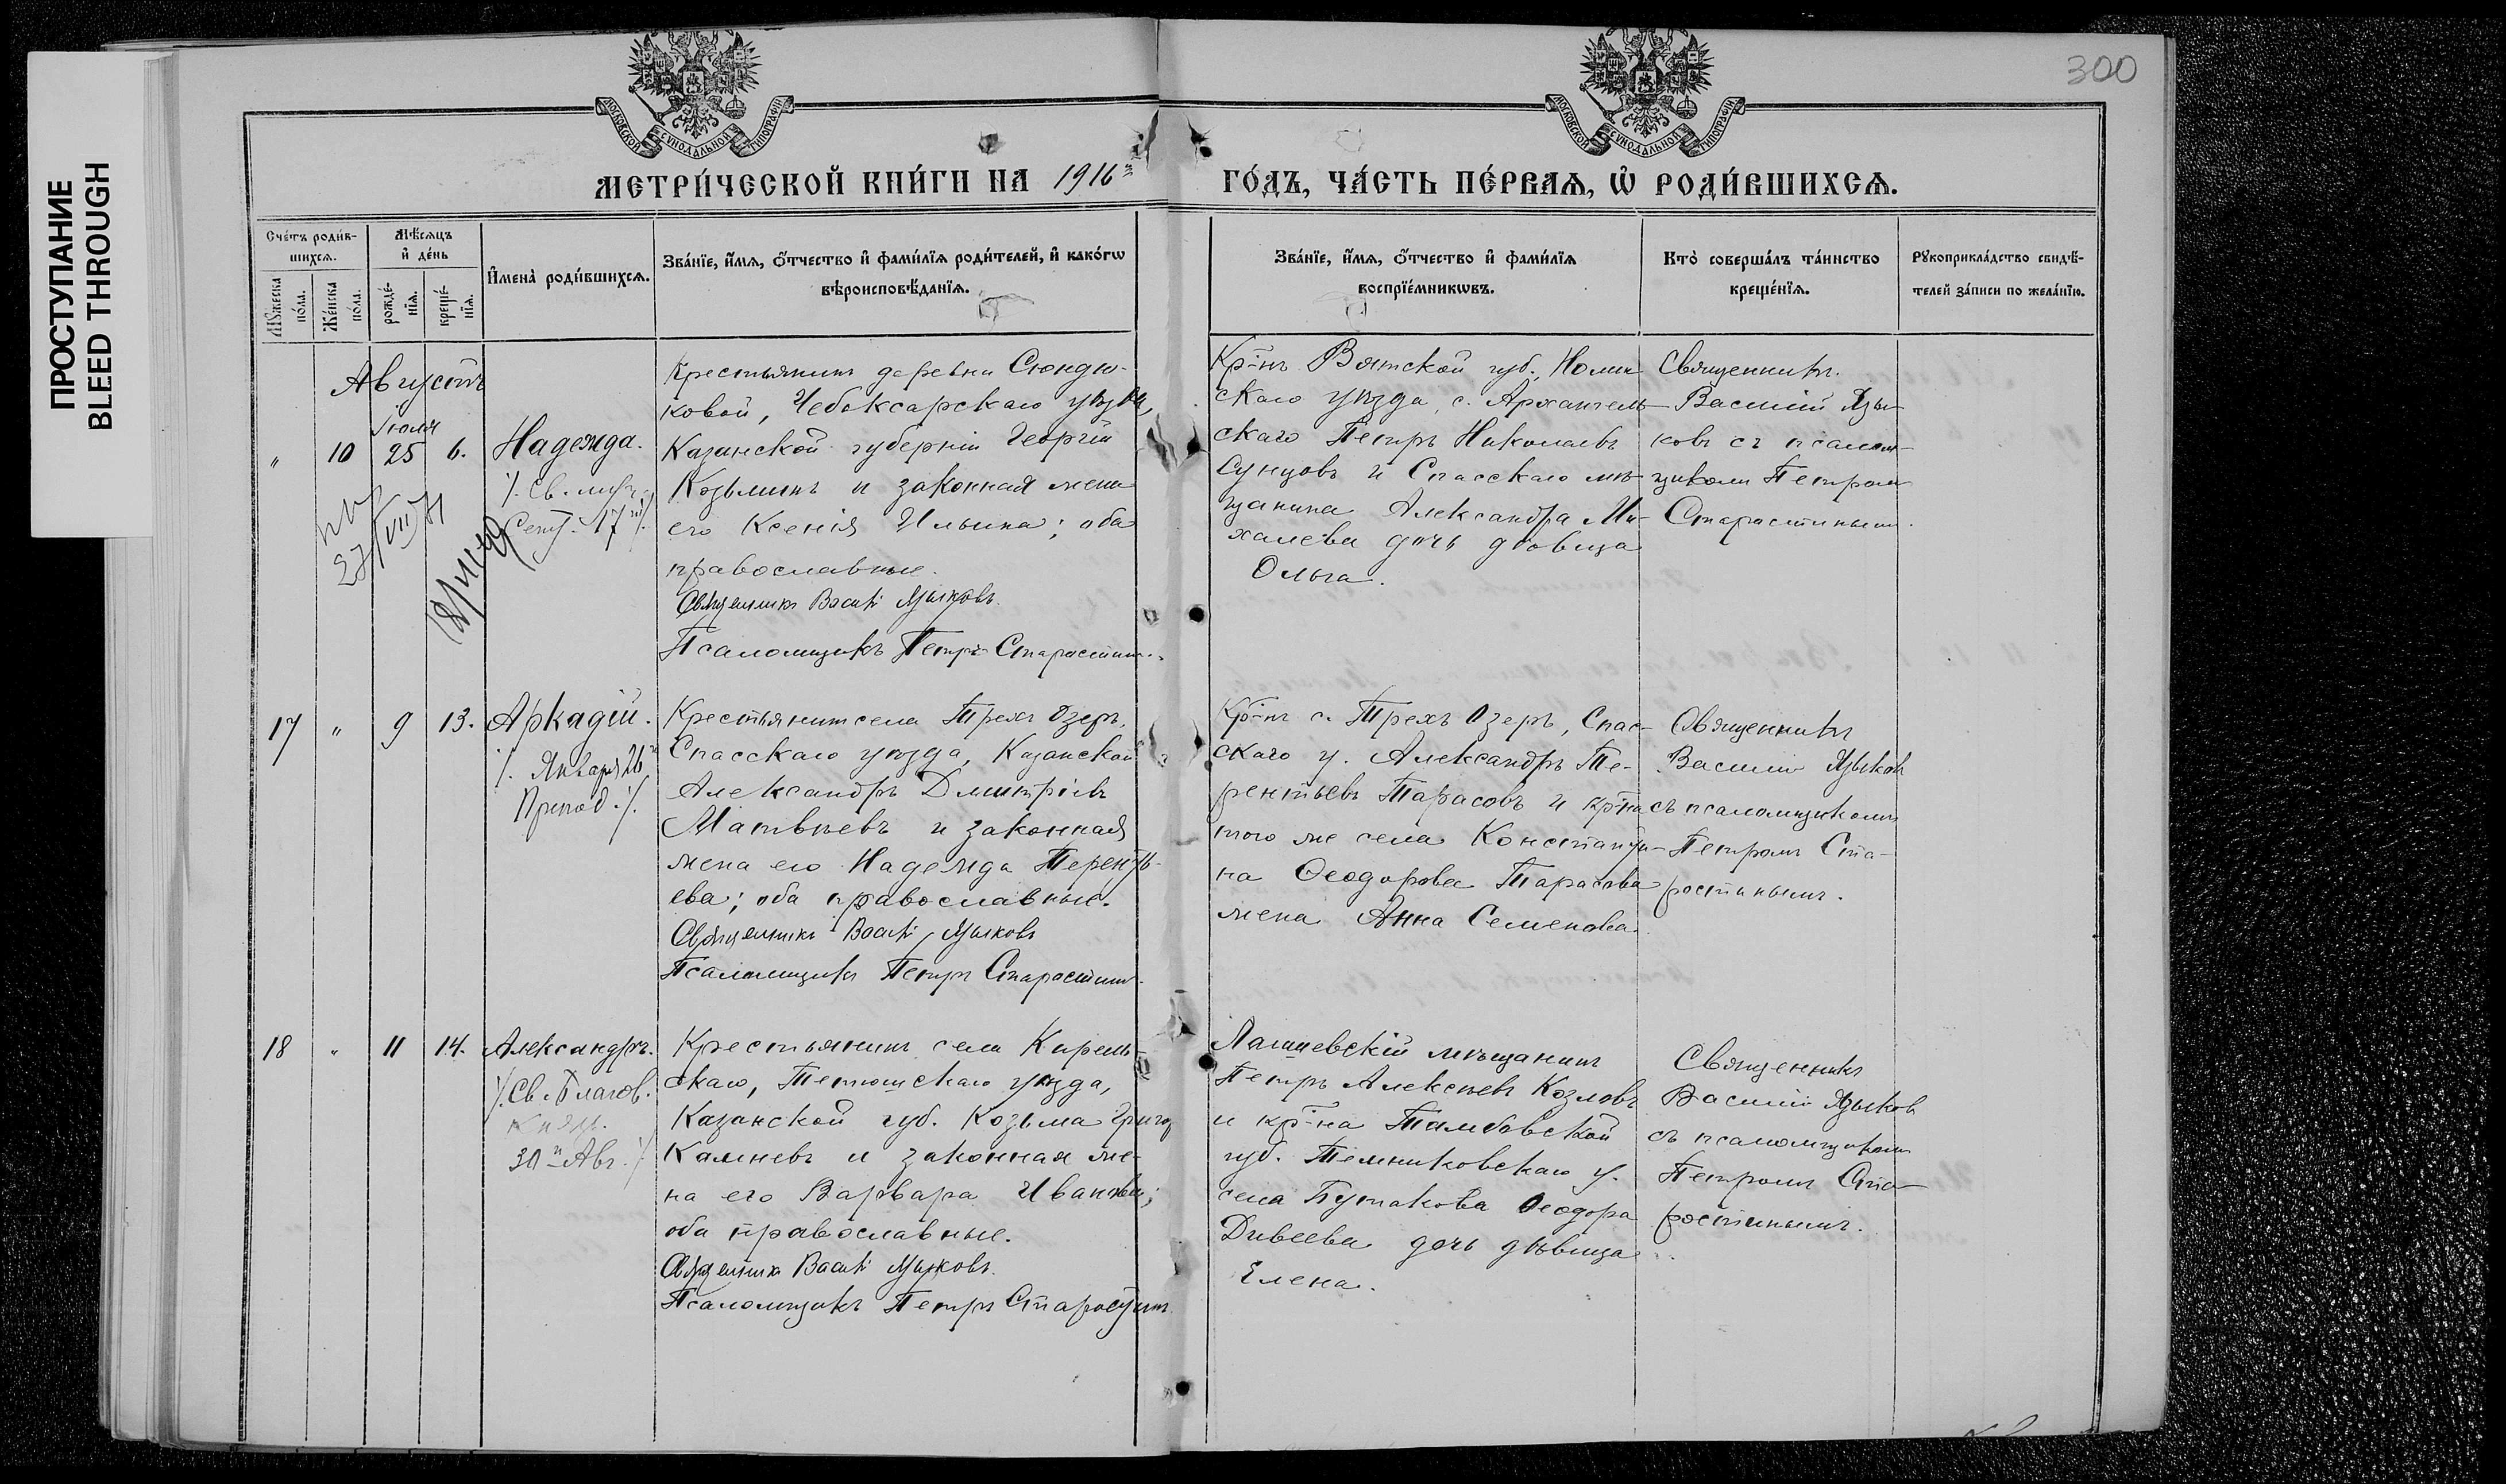 ПРОСТУПАНИЕ
BLEED THROUGH
300
МОСКОВСКОЙ СѴНОДАЛЬНОЙ ТИПОГРАФІИ
МОСКОВСКОЙ СѴНОДАЛЬНОЙ ТИПОГРАФІИ
МЕТРИ́ЧЕСКОЙ КНИ́ГИ НА 1916й ГО́ДЪ, ЧА́СТЬ ПЕ́РВАѦ, Ѡ҆ РОДИ́ВШИХСѦ.
Сче́тъ роди́в-
шихсѧ.
Мѣ́сѧцъ
и҆ де́нь
Мꙋ́жеска
по́ла.
Же́нска
по́ла.
рожде́-
нїѧ.
креще́-
нїѧ.
И҆мена̀ роди́вшихсѧ.
Зва́нїе, и҆́мѧ, ѻ҆́тчество и҆ фами́лїѧ роди́телей, и҆ како́гѡ
вѣроисповѣ́данїѧ.
Зва́нїе, и҆́мѧ, ѻ҆́тчество и҆ фами́лїѧ
воспрїе́мникѡвъ.
Кто̀ соверша́лъ та́инство
креще́нїѧ.
Рꙋкоприкла́дство свидѣ́-
телей за́писи по жела́нїю.
Августъ
Іюля
" 10 25 6.
Надежда.
/. Св. муч.
Сент. 17 /.
27/VII
Крестьянинъ деревни Сюндю-
ковой, Чебоксарскаго уѣзда,
Казанской губерніи Георгій
Козьминъ и законная жена
его Ксенія Ильина; оба
православные.
Священникъ Василій Языковъ.
Псаломщикъ Петръ Старостинъ.
Кр-нъ Вятской губ., Нолин
скаго уѣзда, с. Архангель-
скаго Петръ Николаевъ
Сунцовъ и Спасскаго мѣ-
щанина Александра Ми-
халева дочь дѣвица
Ольга.
Священникъ
Василій Язы-
ковъ съ псалом-
щикомъ Петромъ
Старостинымъ.
17 " 9 13.
Аркадій.
/. Января 26
Препод. /.
Крестьянинъ села Трехъ Озеръ,
Спасскаго уѣзда, Казанской
Александръ Дмитріевъ
Матвѣевъ и законная
жена его Надежда Теренть-
ева; оба православные.
Священникъ Василій Языковъ
Псаломщикъ Петръ Старостинъ.
Кр-нъ с. Трехъ Озеръ, Спас-
скаго у. Александръ Те-
рентьевъ Тарасовъ и кр-на
того же села Константи-
на Ѳеодорова Тарасова
жена Анна Семенова.
Священникъ
Василій Языковъ
съ псаломщикомъ
Петромъ Ста-
ростинымъ.
18 " 11 14.
Александръ.
/. Св. Благов.
Князя.
30й Авг. /.
Крестьянинъ села Кирель-
скаго, Тетюшскаго уѣзда,
Казанской губ. Козьма Григор
Камневъ и законная же-
на его Варвара Иванова;
оба православные.
Священникъ Василій Языковъ.
Псаломщикъ Петръ Старостинъ.
Лаишевскій мѣщанинъ
Петръ Алексѣевъ Козловъ
и кр-на Тамбовской
губ. Темниковскаго у.
села Бутакова Ѳеодора
Дивеева дочь дѣвица
Елена.
Священникъ
Василій Языковъ
съ псаломщикомъ
Петромъ Ста-
ростинымъ.